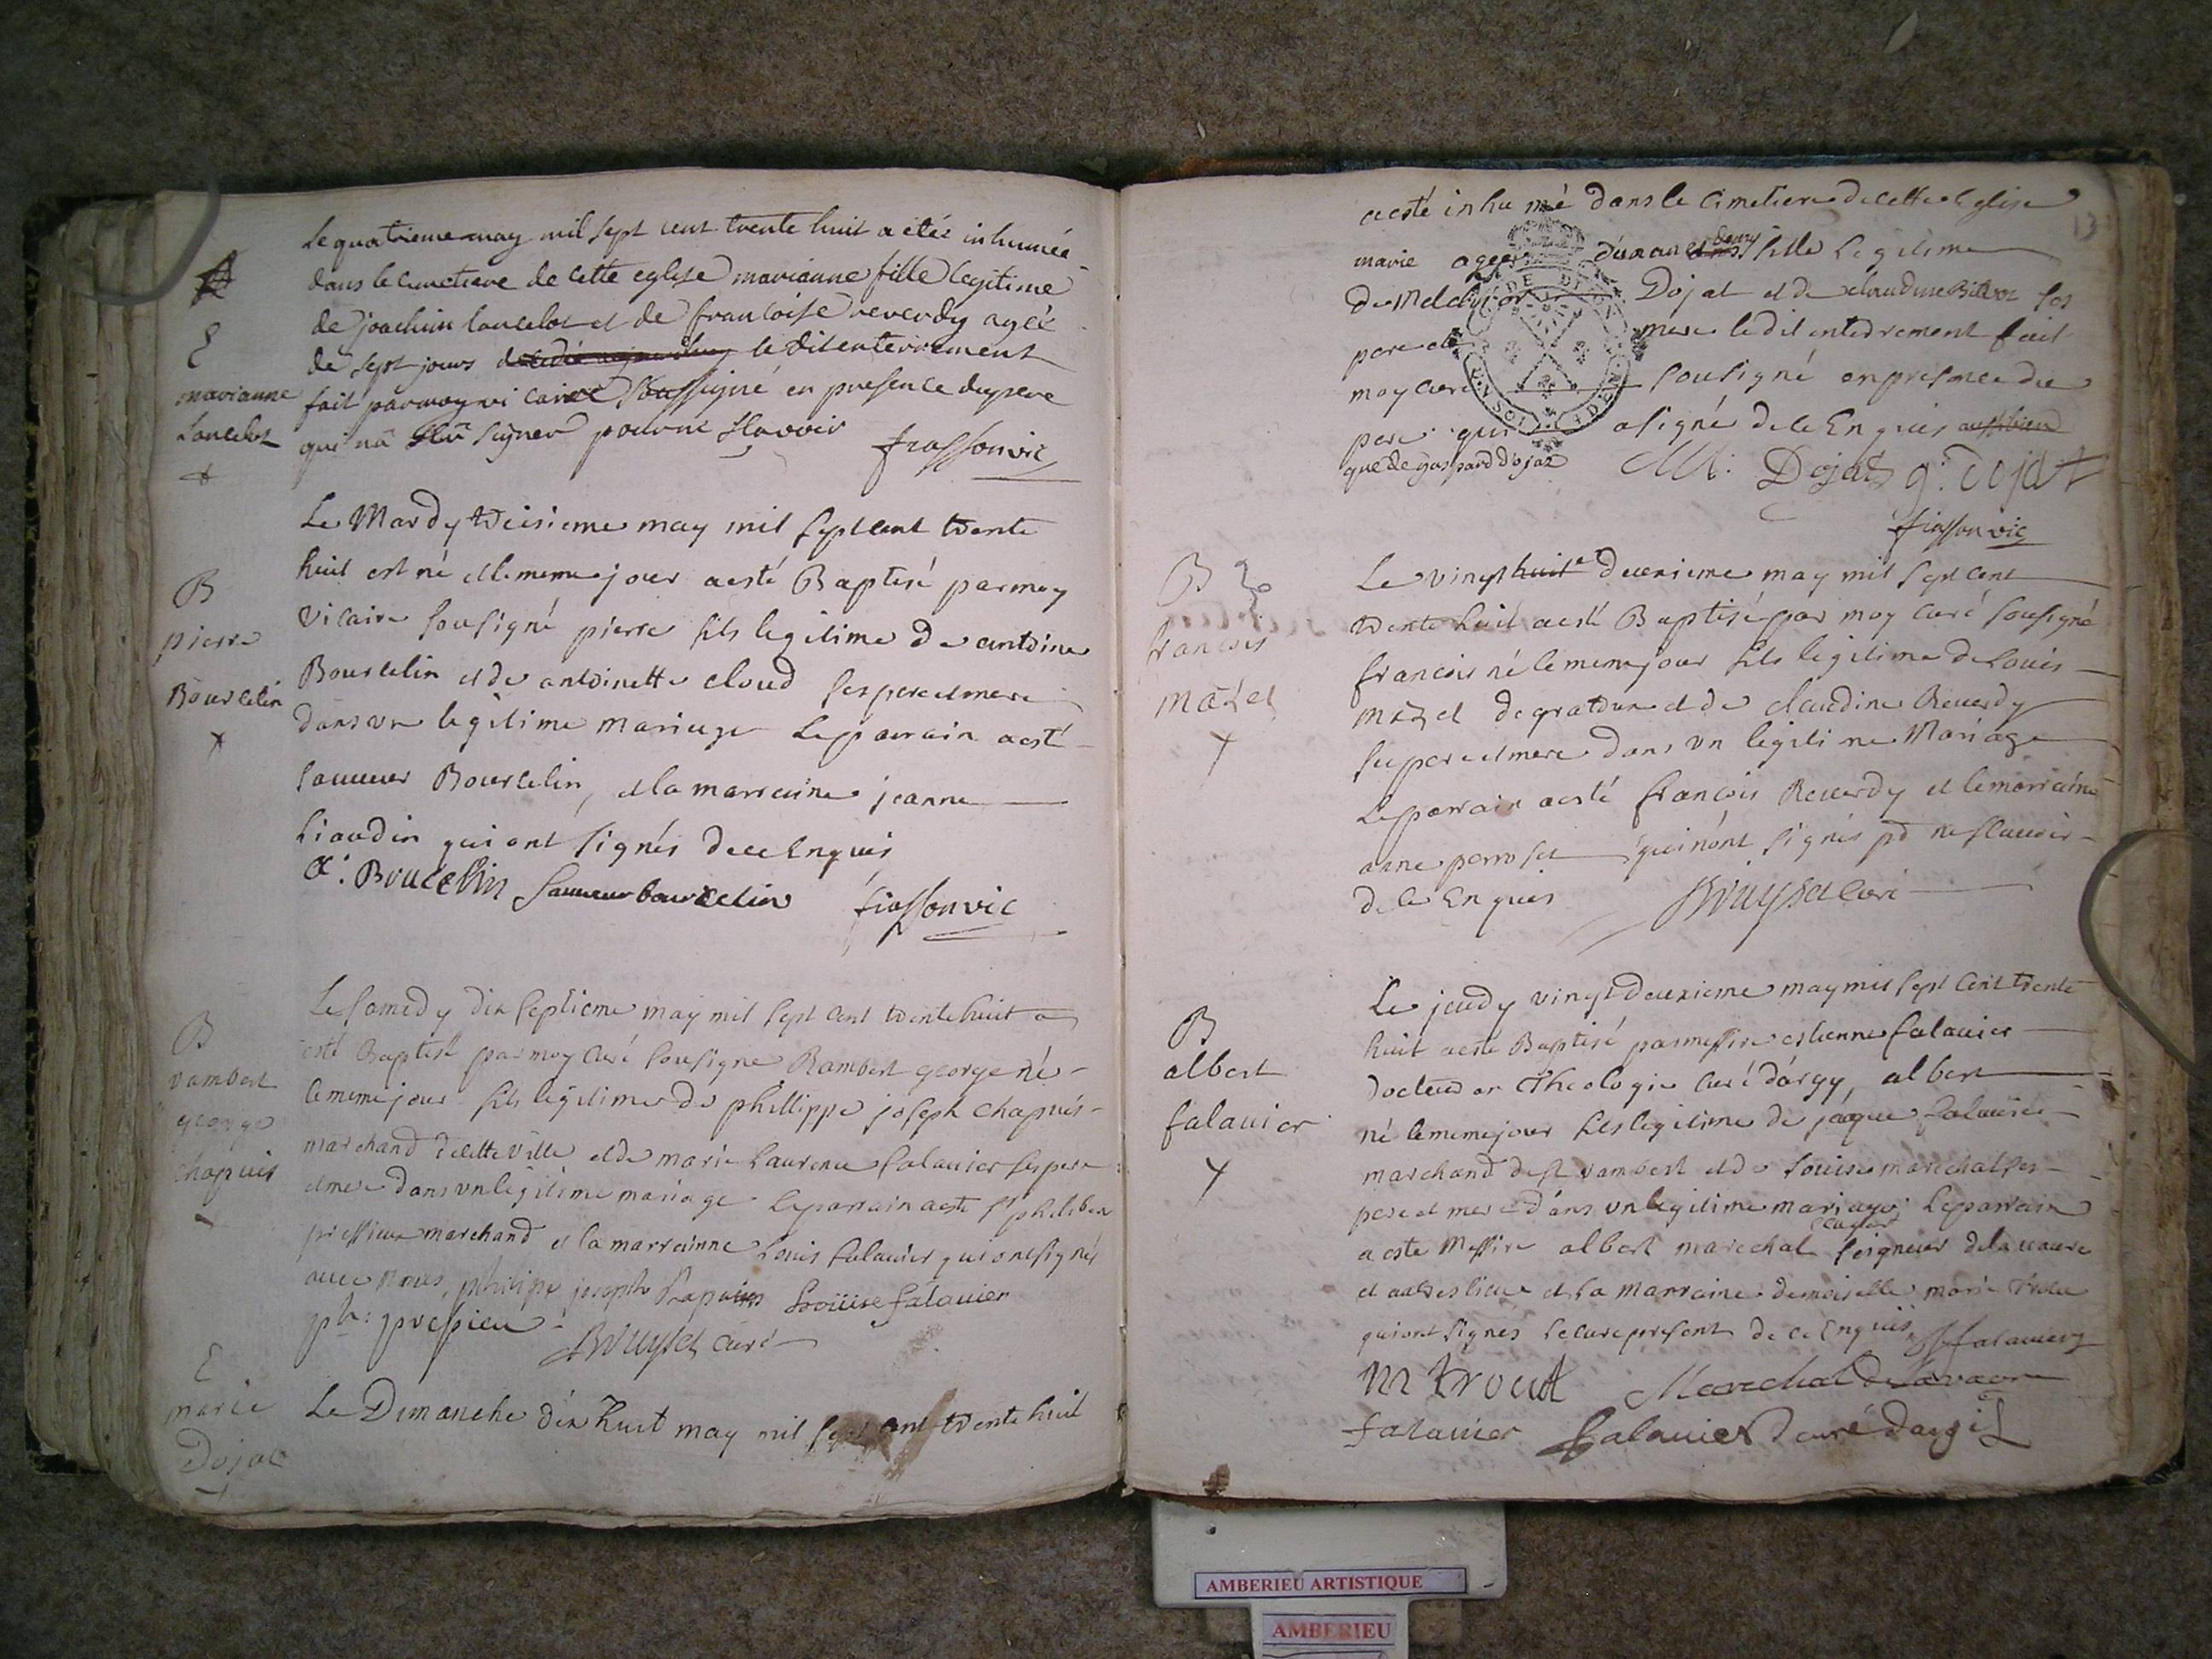 E
marianne
Lancelot
Le quatrieme may mil sept cent trente huit a etée inhumée
dans le cimetiere de cette eglyse marianne fille legitime
de joachim lancelot et de francoise reverdy agée
de sept jours le dit enterrement
fait par moy vicaire soussigné en presence du pere
qui na sçu signer pour ne sçavoir
frasson vic
B
pierre
Bourcelin
Le Mardy treisieme may mil sept cent trente
huit est né et le meme jour a esté Baptisé par moy
vicaire sousigné pierre fils legitime de antoine
Bourcelin et de antoinette cloud ses pere et mere
dans vn legitime mariage le parrain a esté
sauueur Bourcelin, et la marreine jeanne
Liaudin qui ont signés de ce Enquis
a. Boucelin sauueur bourcelin frasson vic
B
rambert
george
chapuis
Le Samedy dix septieme may mil sept cent trente huit a
esté Baptisé par moy curé sousigné Rambert george né
le meme jour fils legitime de phillippe joseph chapuis
marchand de cette ville et de marie Laurence falauier ses pere
et mere dans vn legitime mariage le parrain a esté sr philiber
pressieux marchand et la marreinne Louis falauier qui ont signés
auec nous, philipe joseph Chapuis Loüise falauier
ph: presieu
Bruyset curé
E
marie
Dojat
Le Dimanche dix huit may mil sept cent trente huit
13
a esté inhumé dans le cimetiere de cette Eglise
marie agée d'un an et demy fille legitime
de Melchior Dojat et de claudine ses
pere et mere le dit enterrement fait
moy curé sousigné en presence du
pere qui a signé de ce Enquis aussi bien
que de gaspard dojat M: Dojat g: dojat
frasson vic
B
francois
mazet
Le vingt huit deuxieme may mil sept cent
trente huit a esté Baptisé par moy curé sousigné
francois né le meme jour fils legitime de Louis
mazet de gratoux et de claudine Reuerdy
ses pere et mere dans vn legitime Mariage
le parrain a esté francois Reuerdy et le marreine
anne perroset qui n'ont signés pr ne scauoir
de ce Enquis Bruyset curé
B
albert
falauier
Le jeudy vingt deuxieme may mil sept cent trente
huit a esté Baptisé par messire estienne falauier
docteur en theologie curé d'argy, albert
né le meme jour fils legitime de jaque falauier
marchand de st rambert et de Louise marechal ses
pere et mere dans vn legitime mariage le parrain
a esté Messire albert marechal escuyer seigneur de la vaure
et autres lieux et la Marraine demoiselle marie trolu
qui ont signés le curé present de ce Enquis falauier
M trocut Marechal de Lavaure
falauier falauier curé dargil
AMBERIEU ARTISTIQUE
AMBERIEU